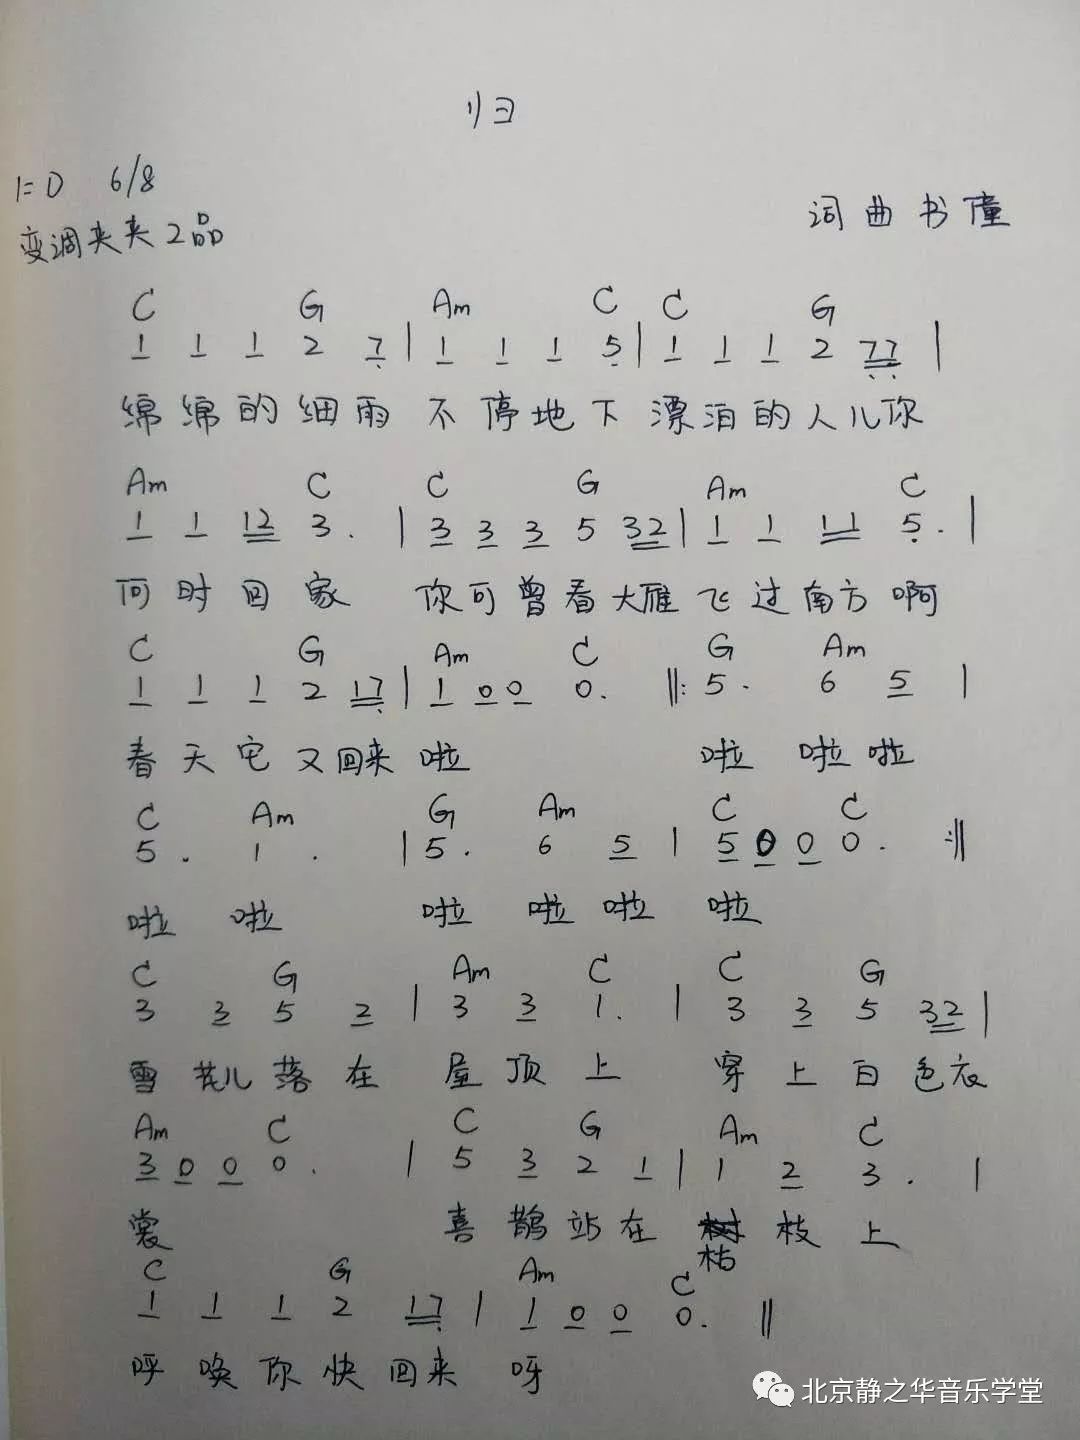 归
1=D 6/8
变调夹夹2品
词曲书僮
C G Am C C G
1 1 1 2 7 | 1 1 1 5 | 1 1 1 2 77 |
绵绵的细雨不停地下漂泊的人儿你
Am C C G Am C
1 1 12 3. | 3 3 3 5 32 | 1 1 11 5. |
何时回家 你可曾看大雁飞过南方啊
C G Am C G Am
1 1 1 2 17 | 1 0 0 0. ‖: 5. 6 5 |
春天它又回来啦 啦 啦啦
C Am G Am C C
5. 1. | 5. 6 5 | 5 0 0 0. :‖
啦 啦 啦 啦 啦 啦
C G Am C C G
3 3 5 2 | 3 3 1. | 3 3 5 32 |
雪花儿落在屋顶上 穿上白色衣
Am C C G Am C
3 0 0 0. | 5 3 2 1 | 1 2 3. |
裳 喜鹊站在枯枝上
C G Am C
1 1 1 2 17 | 1 0 0 0. ‖
呼唤你快回来呀
北京静之华音乐学堂